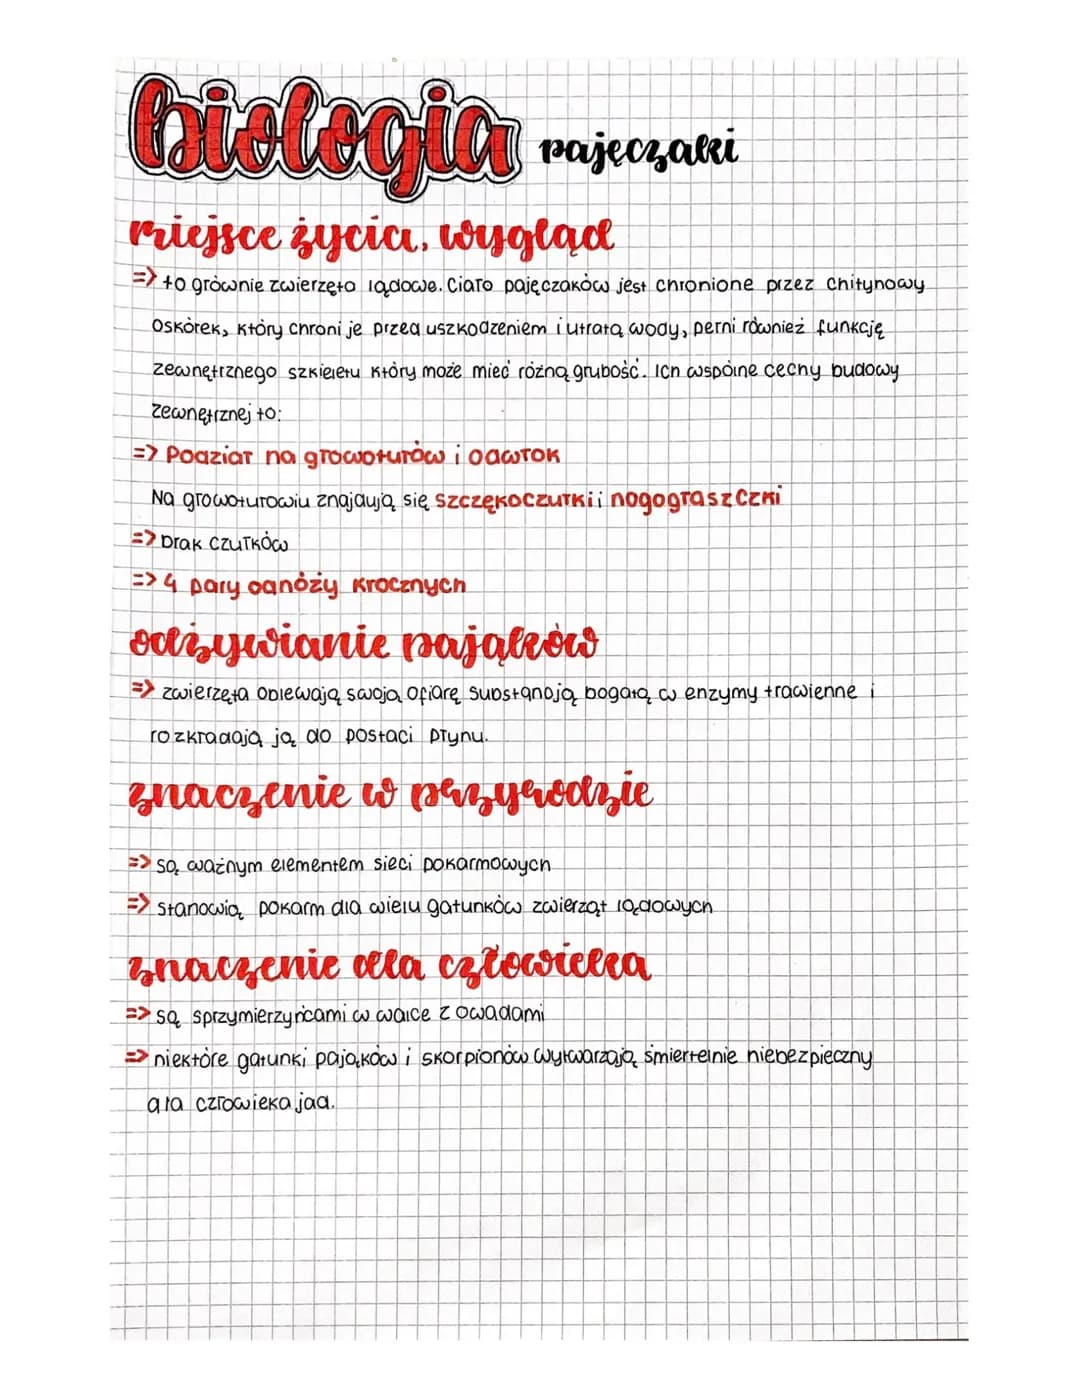 biologia pajęczaki
miejsce życia, wygląd
=> to głównie zwierzęto lądowe. Ciało pajęczaków jest chronione przez chitynowy
oskórek, który chroni je przed uszkodzeniem i utratą wody, pełni również funkcję
zewnętrznego szkieletu który może mieć różną grubość. Ich wspólne cechy budowy
zewnętrznej to:
=> Podział na głowotułów i odwłok
Na głowotułowiu znajdują się szczękoczułki i nogogłaszczki
=> brak czułków
=> 4 pary odnóży krocznych
odżywianie pająków
=> zwierzęta oblewają swoją ofiarę substancją bogatą w enzymy trawienne i
rozkładają ją do postaci płynu.
znaczenie w przyrodzie
=> są ważnym elementem sieci pokarmowych
=> stanowią pokarm dla wielu gatunków zwierząt lądowych
znaczenie dla człowieka
=> są sprzymierzyńcami w walce z owadami
=> niektóre gatunki pająków i skorpionów wytwarzają śmiertelnie niebezpieczny
dla człowieka jad.